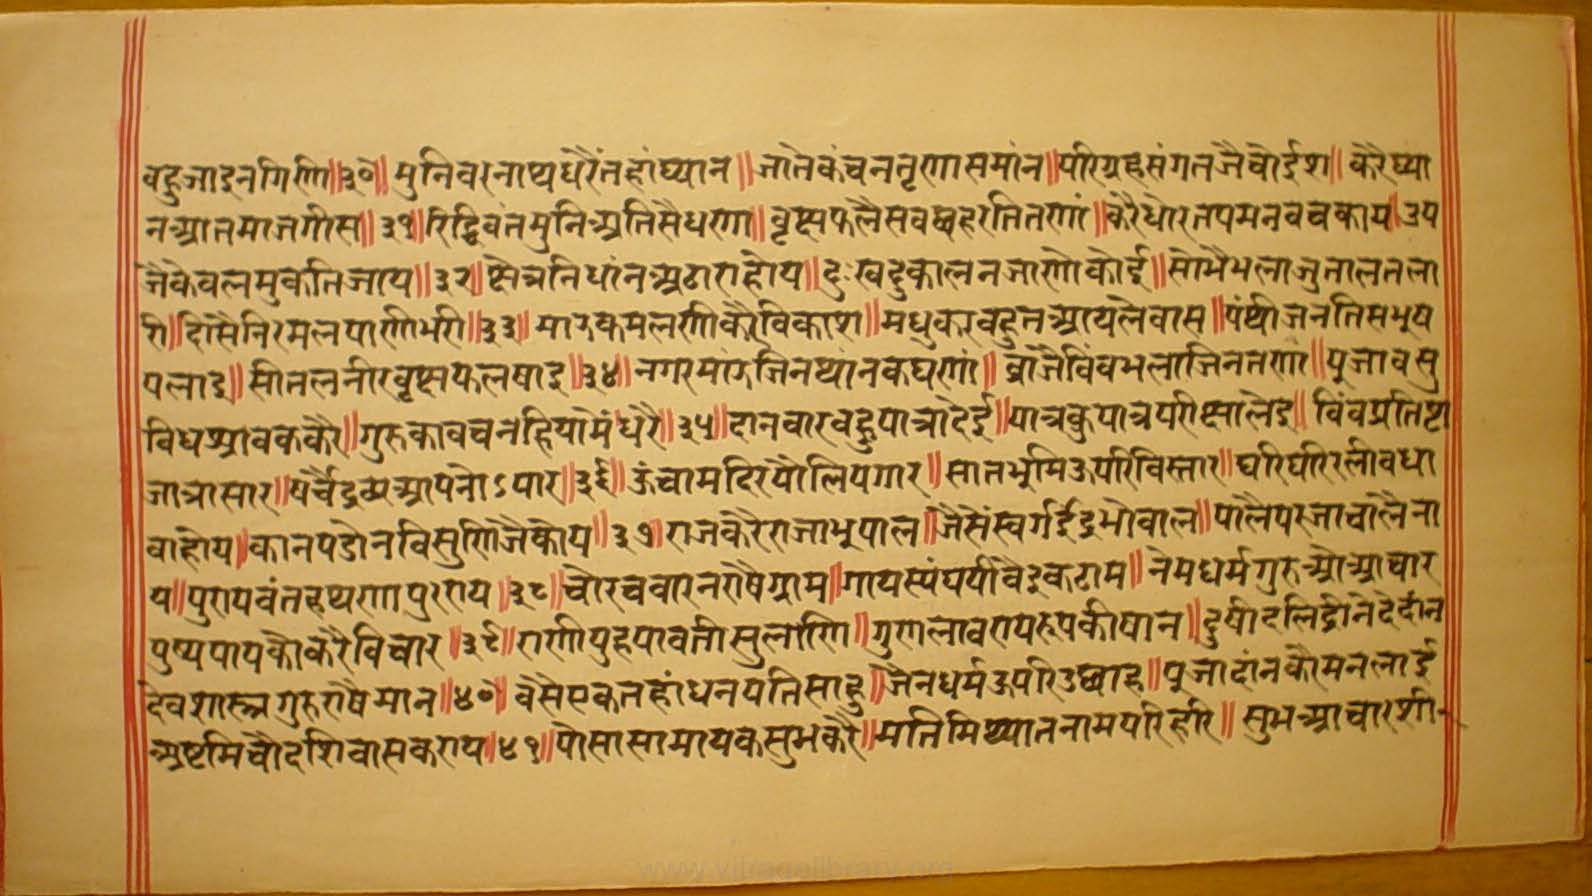 वहु जाइ न गिणि॥३०॥ मुनिवर नाष्य धरै तहां ध्यान॥ जाने कंचन तृण समांन॥ परिग्रह संग तजै चौईश॥ करै ध्या
न आतमा जगीस॥३१॥ रिद्धिवंत मुनि अतिसै धरणा॥ वृक्ष फलै सव छह रति तणां॥ करै घोर तप मन वच काय॥ उप
जै केवल मुकति जाय॥३२॥ षैत्र निधांन अठारा होय॥ दुःख दुकाल न जाणे कोई॥ सोभै भला जु ताल तला
री॥ दिसै निरमल पाणी भरी॥३३॥ मारु कमलणी करै विकाश॥ मधुकर वहुत आय ले वास॥ पंथी जन तिस भूष
पलाइ॥ सीतल नीर वृक्ष फल षाइ॥३४॥ नगर मांरु जिन थांनक घणां॥ व्राजै विंव भला जिन तणा॥ पूजा वसु
विध श्रावक करै॥ गुरु का वचन हिया में धरै॥३५॥ दान चार वहु पात्रा देई॥ पात्र कुपात्र परीक्षा लेइ॥ विंव प्रतिष्टा
जात्रा सार॥ षर्चै द्रव्य आपनो ऽपार॥३६॥ ऊंचा मदिर पौलि पगार॥ सात भूमि ऊपरि विस्तार॥ घरि घरि रली वधा
वा होय॥ कान पडो नवि सुणिजै कोय॥३७॥ राज करै राजा भूपाल॥ जैसें स्वर्ग ईद्र भोवाल॥ पालै परजा चालै ना
य॥ पुण्यवंत हथणापुर राय॥३८॥ चोर चवार न राषै ग्राम॥ गाय स्यंघ पीवै इक ठाम॥ नेम धर्म गुरु औ आचार
पुण्य पाप कौ करै विचार॥३९॥ राणी पुहपावती सुलाणि॥ गुण लावण्य रूप की षान॥ दुषी दलिद्री ने दे दांन
देव शास्त्र गुरु राषै मान॥४०॥ वैसै एक तहां धनपति साहु॥ जैनधर्म ऊपरि उछाह॥ पूजा दांन कौ मन लाई
अष्टमि चौदशि वास कराय॥४१॥ पोसा सामायक सुभ करै॥ मति मिथ्यात नाम परिहरि॥ सुभ आचार शी